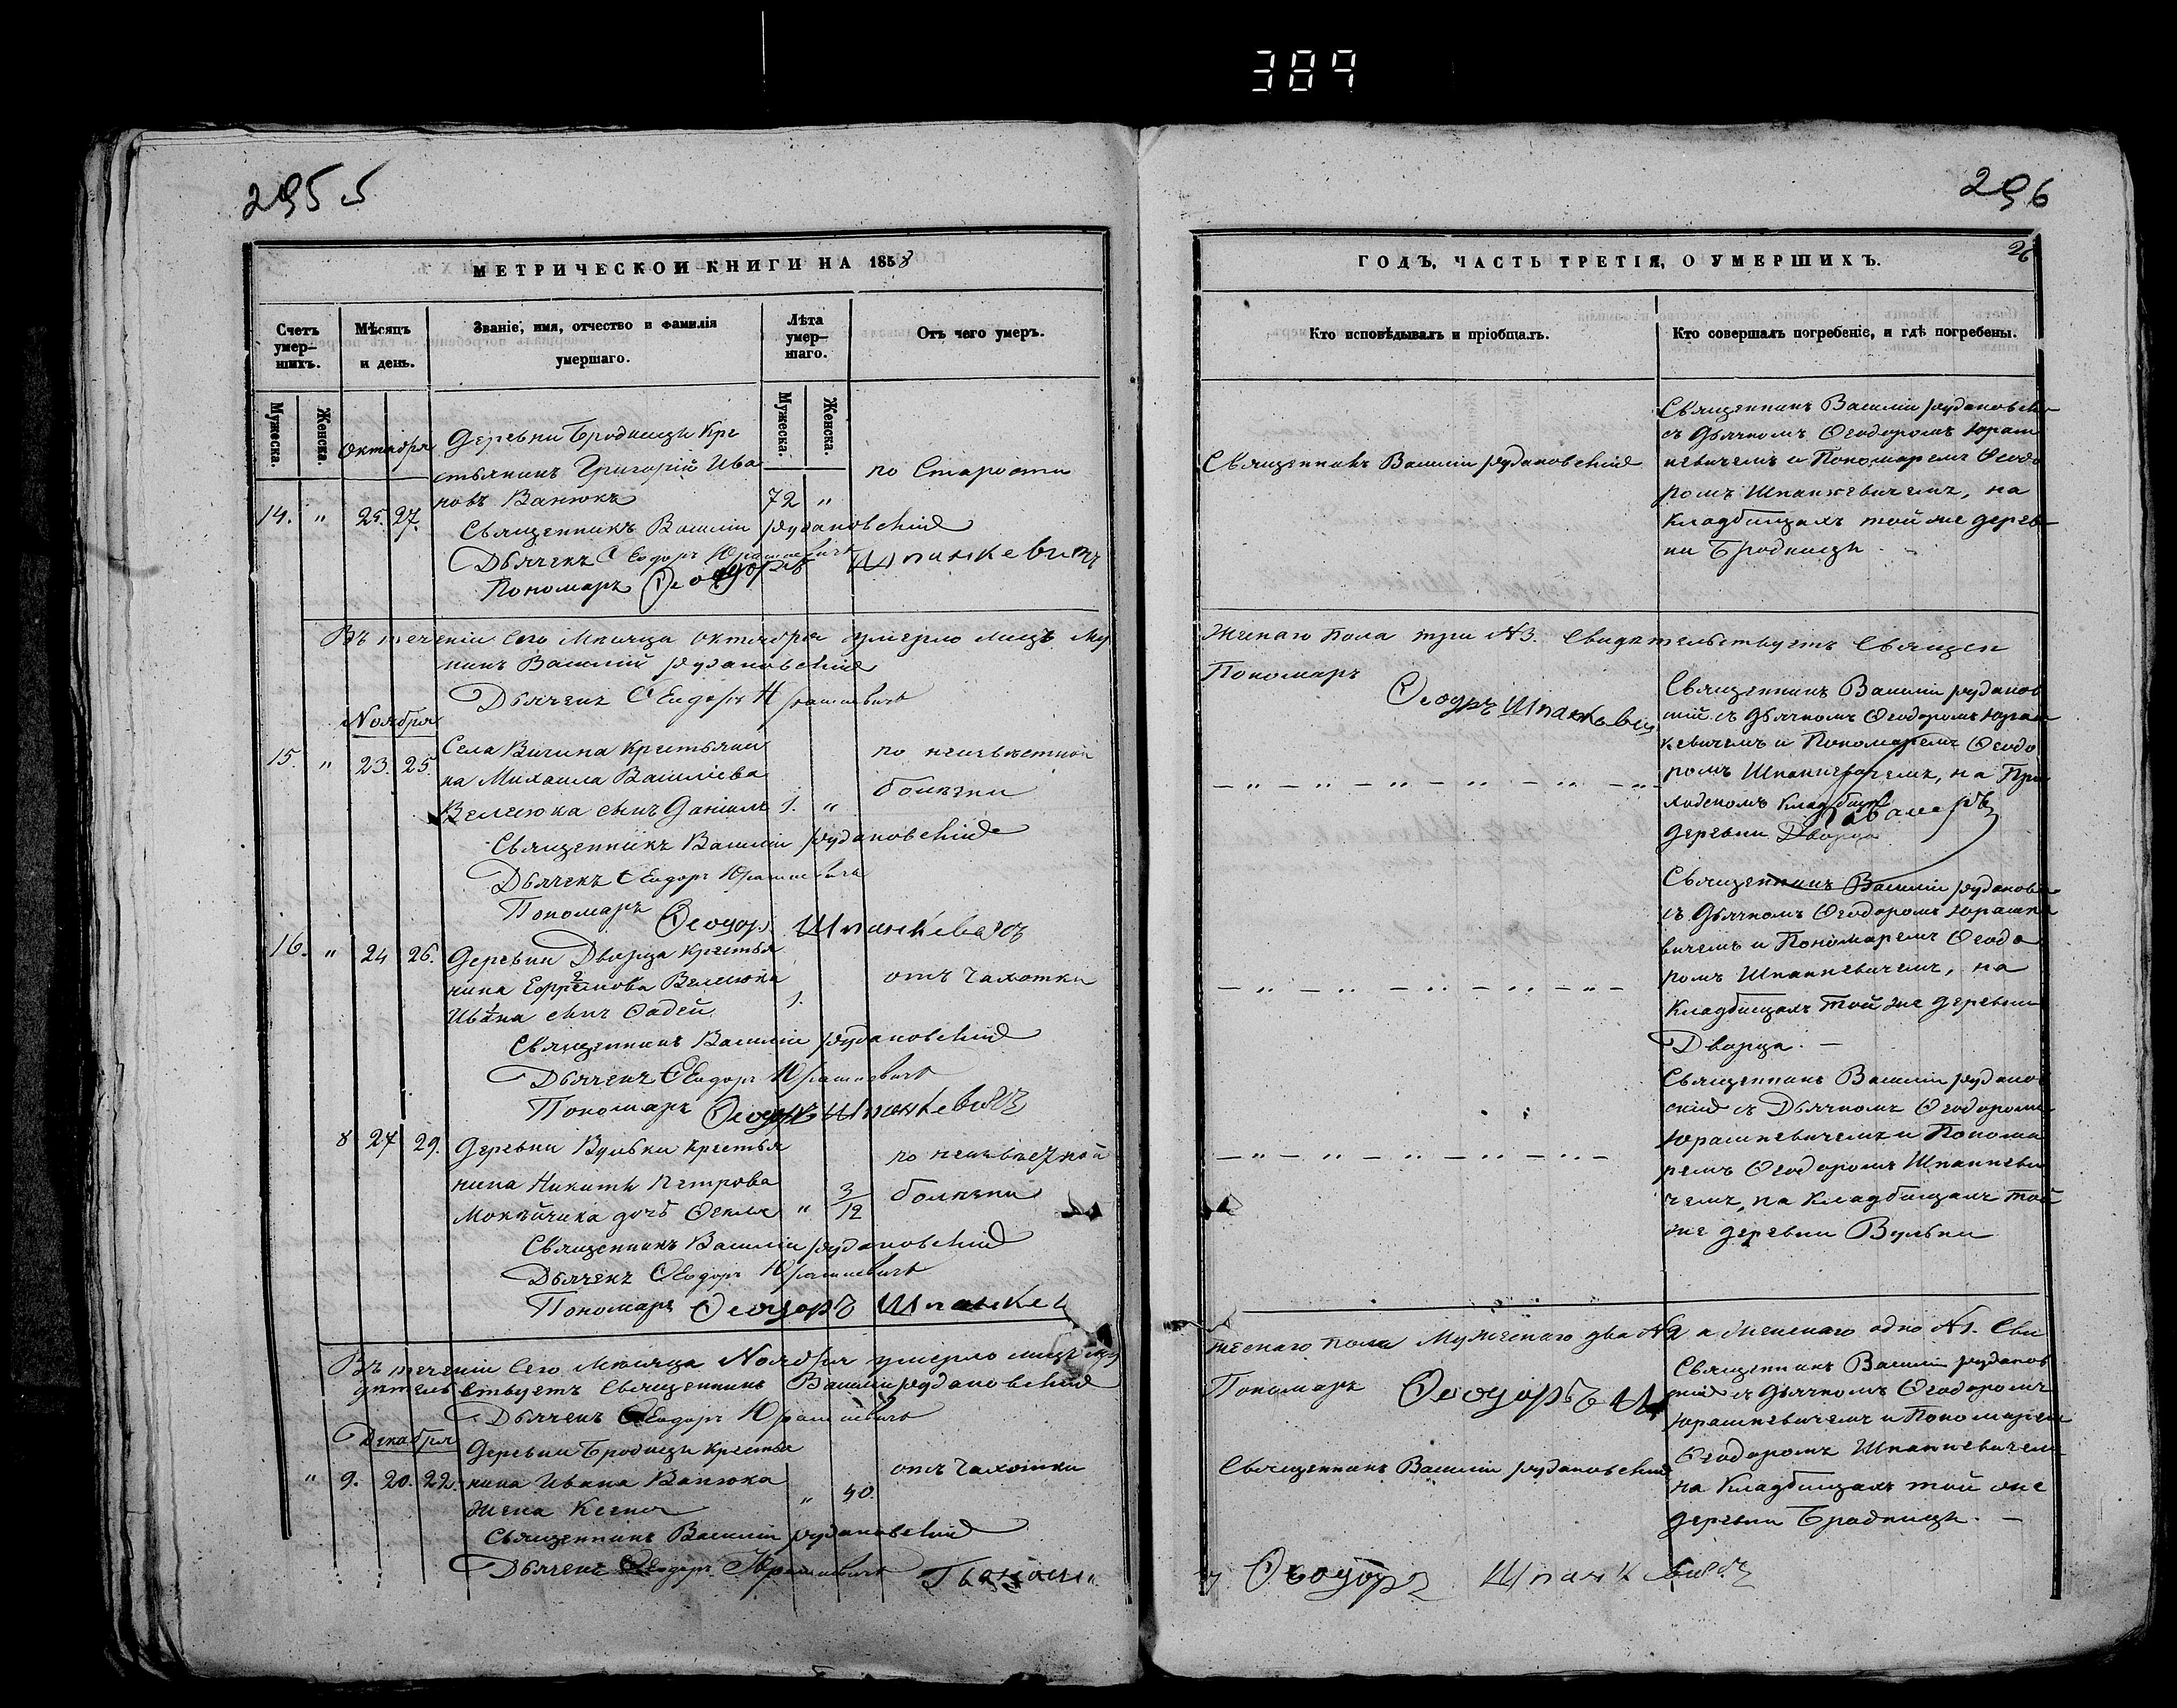 389
295
5
МЕТРИЧЕСКОЙ КНИГИ НА 1858
Счетъ умер-шихъ.
Мѣсяцъ и день.
Званіе, имя, отчество и фамилія умершаго.
Лѣта умер-шаго.
Отъ чего умеръ.
Мужеска.
Женска.
Мужеска.
Женска.
Октября
Деревни Бродницы Кре
стьянинъ Григорій Ива
новъ Ванюкъ
14. " 25. 27.
72 "
по Старости
Священникъ Василій Рудановскій
Дьячекъ Ѳеодоръ Юрашкевичъ
Пономарь Ѳеодоръ Шпанкевичъ
Въ теченіи Сего Мѣсяца Октября умерло лицъ Му
никъ Василій Рудановскій
Дьячекъ Ѳеодоръ Юрашкевичъ
Ноября
15. " 23. 25.
Села Вичина Крестьяни
на Михаила Василіева
Велесюка сынъ Даніилъ 1. "
по неизвѣстной
болѣзни
Священникъ Василій Рудановскій
Дьячекъ Ѳеодоръ Юрашкевичъ
Пономарь Ѳеодоръ Шпанкевичъ
16. " 24 26.
Деревни Дворца Крестья
нина Ефремова Велесюка
Ивана сынъ Ѳадей 1.
отъ чахотки
Священникъ Василій Рудановскій
Дьячекъ Ѳеодоръ Юрашкевичъ
Пономарь Ѳеодоръ Шпанкевичъ
8 27 29.
Деревни Вульки Крестья
нина Никиты Петрова
дочь Ѳекла " 3/12
по неизвѣстной
болѣзни
Священникъ Василій Рудановскій
Дьячекъ Ѳеодоръ Юрашкевичъ
Пономарь Ѳеодоръ Шпанкев
Въ теченіи Сего Мѣсяца Ноября умерло лицъ му
дѣтельствуетъ Священникъ Василій Рудановскій
Дьячекъ Ѳеодоръ Юрашкевичъ
Декабря
" 9. 20. 22.
Деревни Бродницы Крестья
нина Ивана Ванюка
жена Ксенія
" 40.
отъ чахотки
Священникъ Василій Рудановскій
Дьячекъ Ѳеодоръ Юрашкевичъ
296
26
ГОДЪ, ЧАСТЬ ТРЕТІЯ, О УМЕРШИХЪ.
Кто исповѣдывалъ и пріобщалъ.
Кто совершалъ погребеніе, и гдѣ погребены.
Священникъ Василій Рудановскій
Священникъ Василій Рудановскій
съ Дьячкомъ Ѳеодоромъ Юраш
кевичемъ и Пономаремъ Ѳеодо
ромъ Шпанкевичемъ, на
Кладбищахъ той же дерев
ни Бродницы.
Женскаго пола три №3. Свидѣтельствуетъ Священ
Пономарь
Ѳеодоръ Шпанкевич
Священникъ Василій Рудановс
кій съ Дьячкомъ Ѳеодоромъ Юраш
кевичемъ и Пономаремъ Ѳеодо
ромъ Шпанкевичемъ, на При
ходскомъ Кладбищѣ
деревни Дворца
Священникъ Василій Рудановс
съ Дьячкомъ Ѳеодоромъ Юрашке
вичемъ и Пономаремъ Ѳеодо
ромъ Шпанкевичемъ, на
Кладбищахъ той же деревни
Дворца. –
Священникъ Василій Рудановс
скій съ Дьячкомъ Ѳеодоромъ
Юрашкевичемъ и Понома
ремъ Ѳеодоромъ Шпанкеви
чемъ, на Кладбищахъ той
же деревни Вульки
жескаго пола Мужескаго два №2 а Женскаго одно №1. Сви
Пономарь Ѳеодоръ Ш
Священникъ Василій Рудановскій
Священникъ Василій Рудановс
скій съ Дьячкомъ Ѳеодоромъ
Юрашкевичемъ и Пономарем
Ѳеодоромъ Шпанкевичем
на Кладбищахъ той же
деревни Бродницы. –
Ѳеодоръ Шпанкевичъ